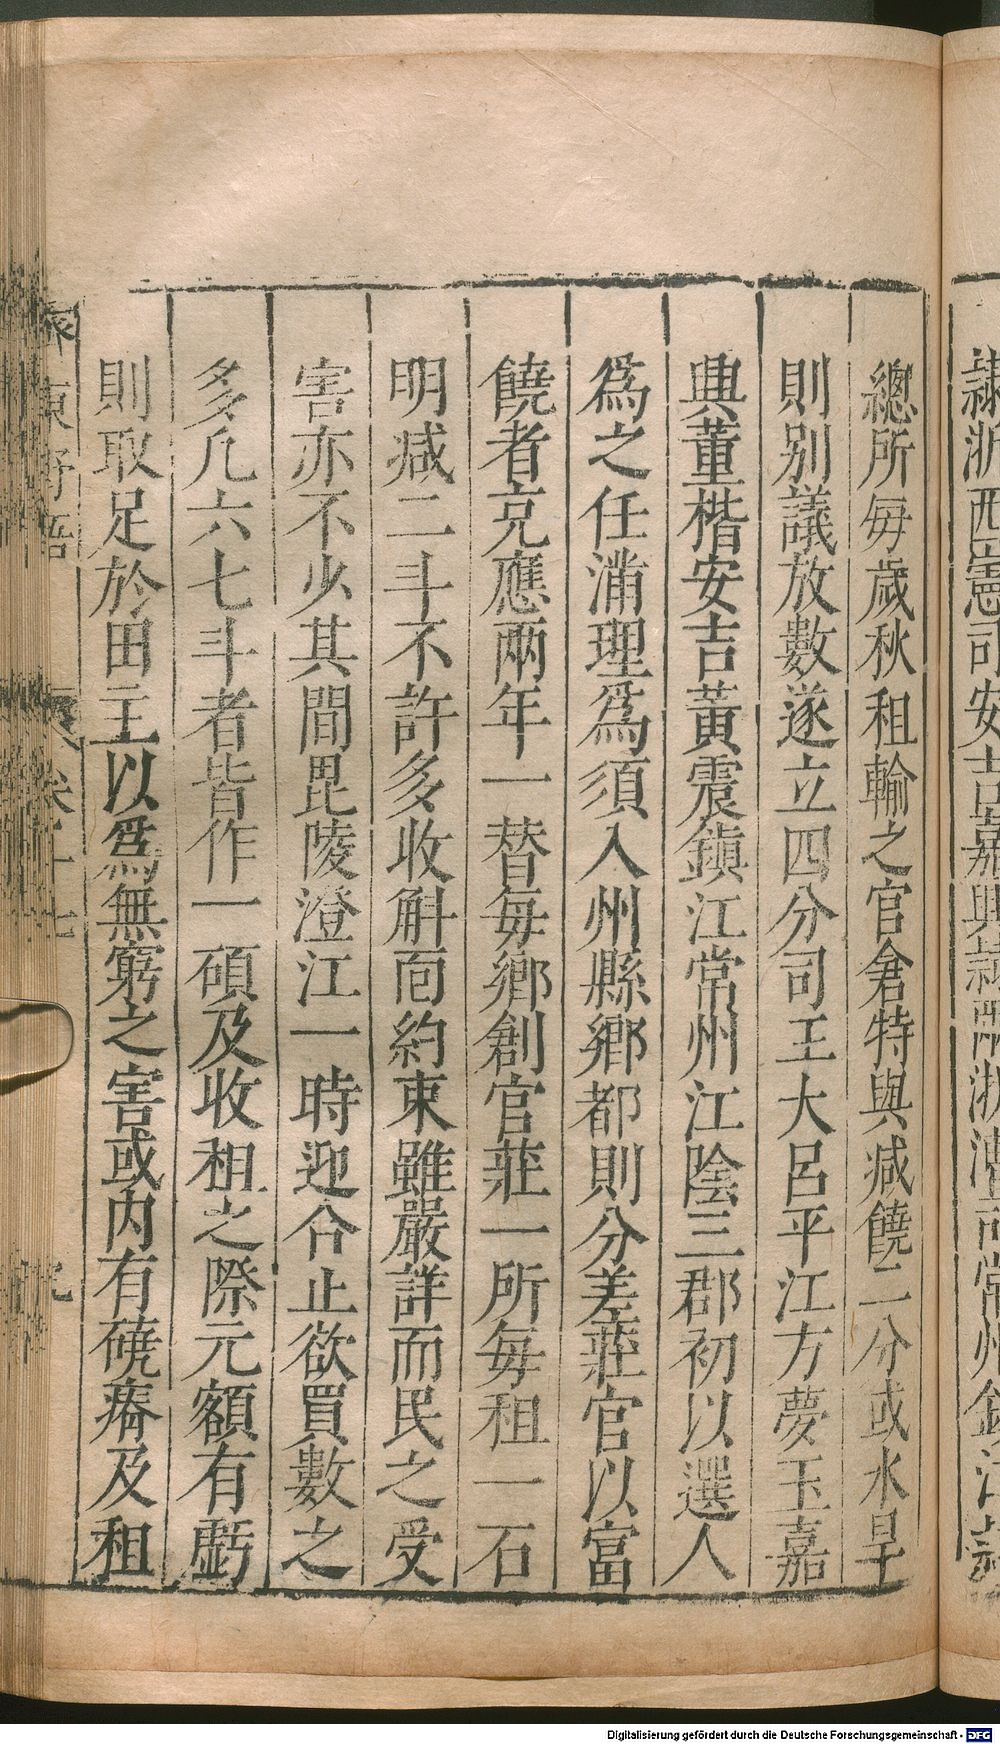 隸浙西憲司安吉嘉興隸兩浙漕司常州鎮江隸
總所每歲秋租輸之官倉特與减饒二分或水旱
則别議放數遂立四分司王大呂平江方夢玉嘉
興董楷安吉黃震鎮江常州江陰三郡初以選人
爲之任滿理爲須入州縣鄉都則分差莊官以富
饒者充應兩年一替每鄉創官莊一所每租一石
明减二斗不許多收斛面約束雖嚴詳而民之受
害亦不少其間毘陵澄江一時迎合止欲買數之
多凡六七斗者皆作一碩及收租之際元額有虧
則取足於田主以爲無窮之害或内有磽瘠及租
東野語 卷十七
Digitalisierung gefördert durch die Deutsche Forschungsgemeinschaft - DFG